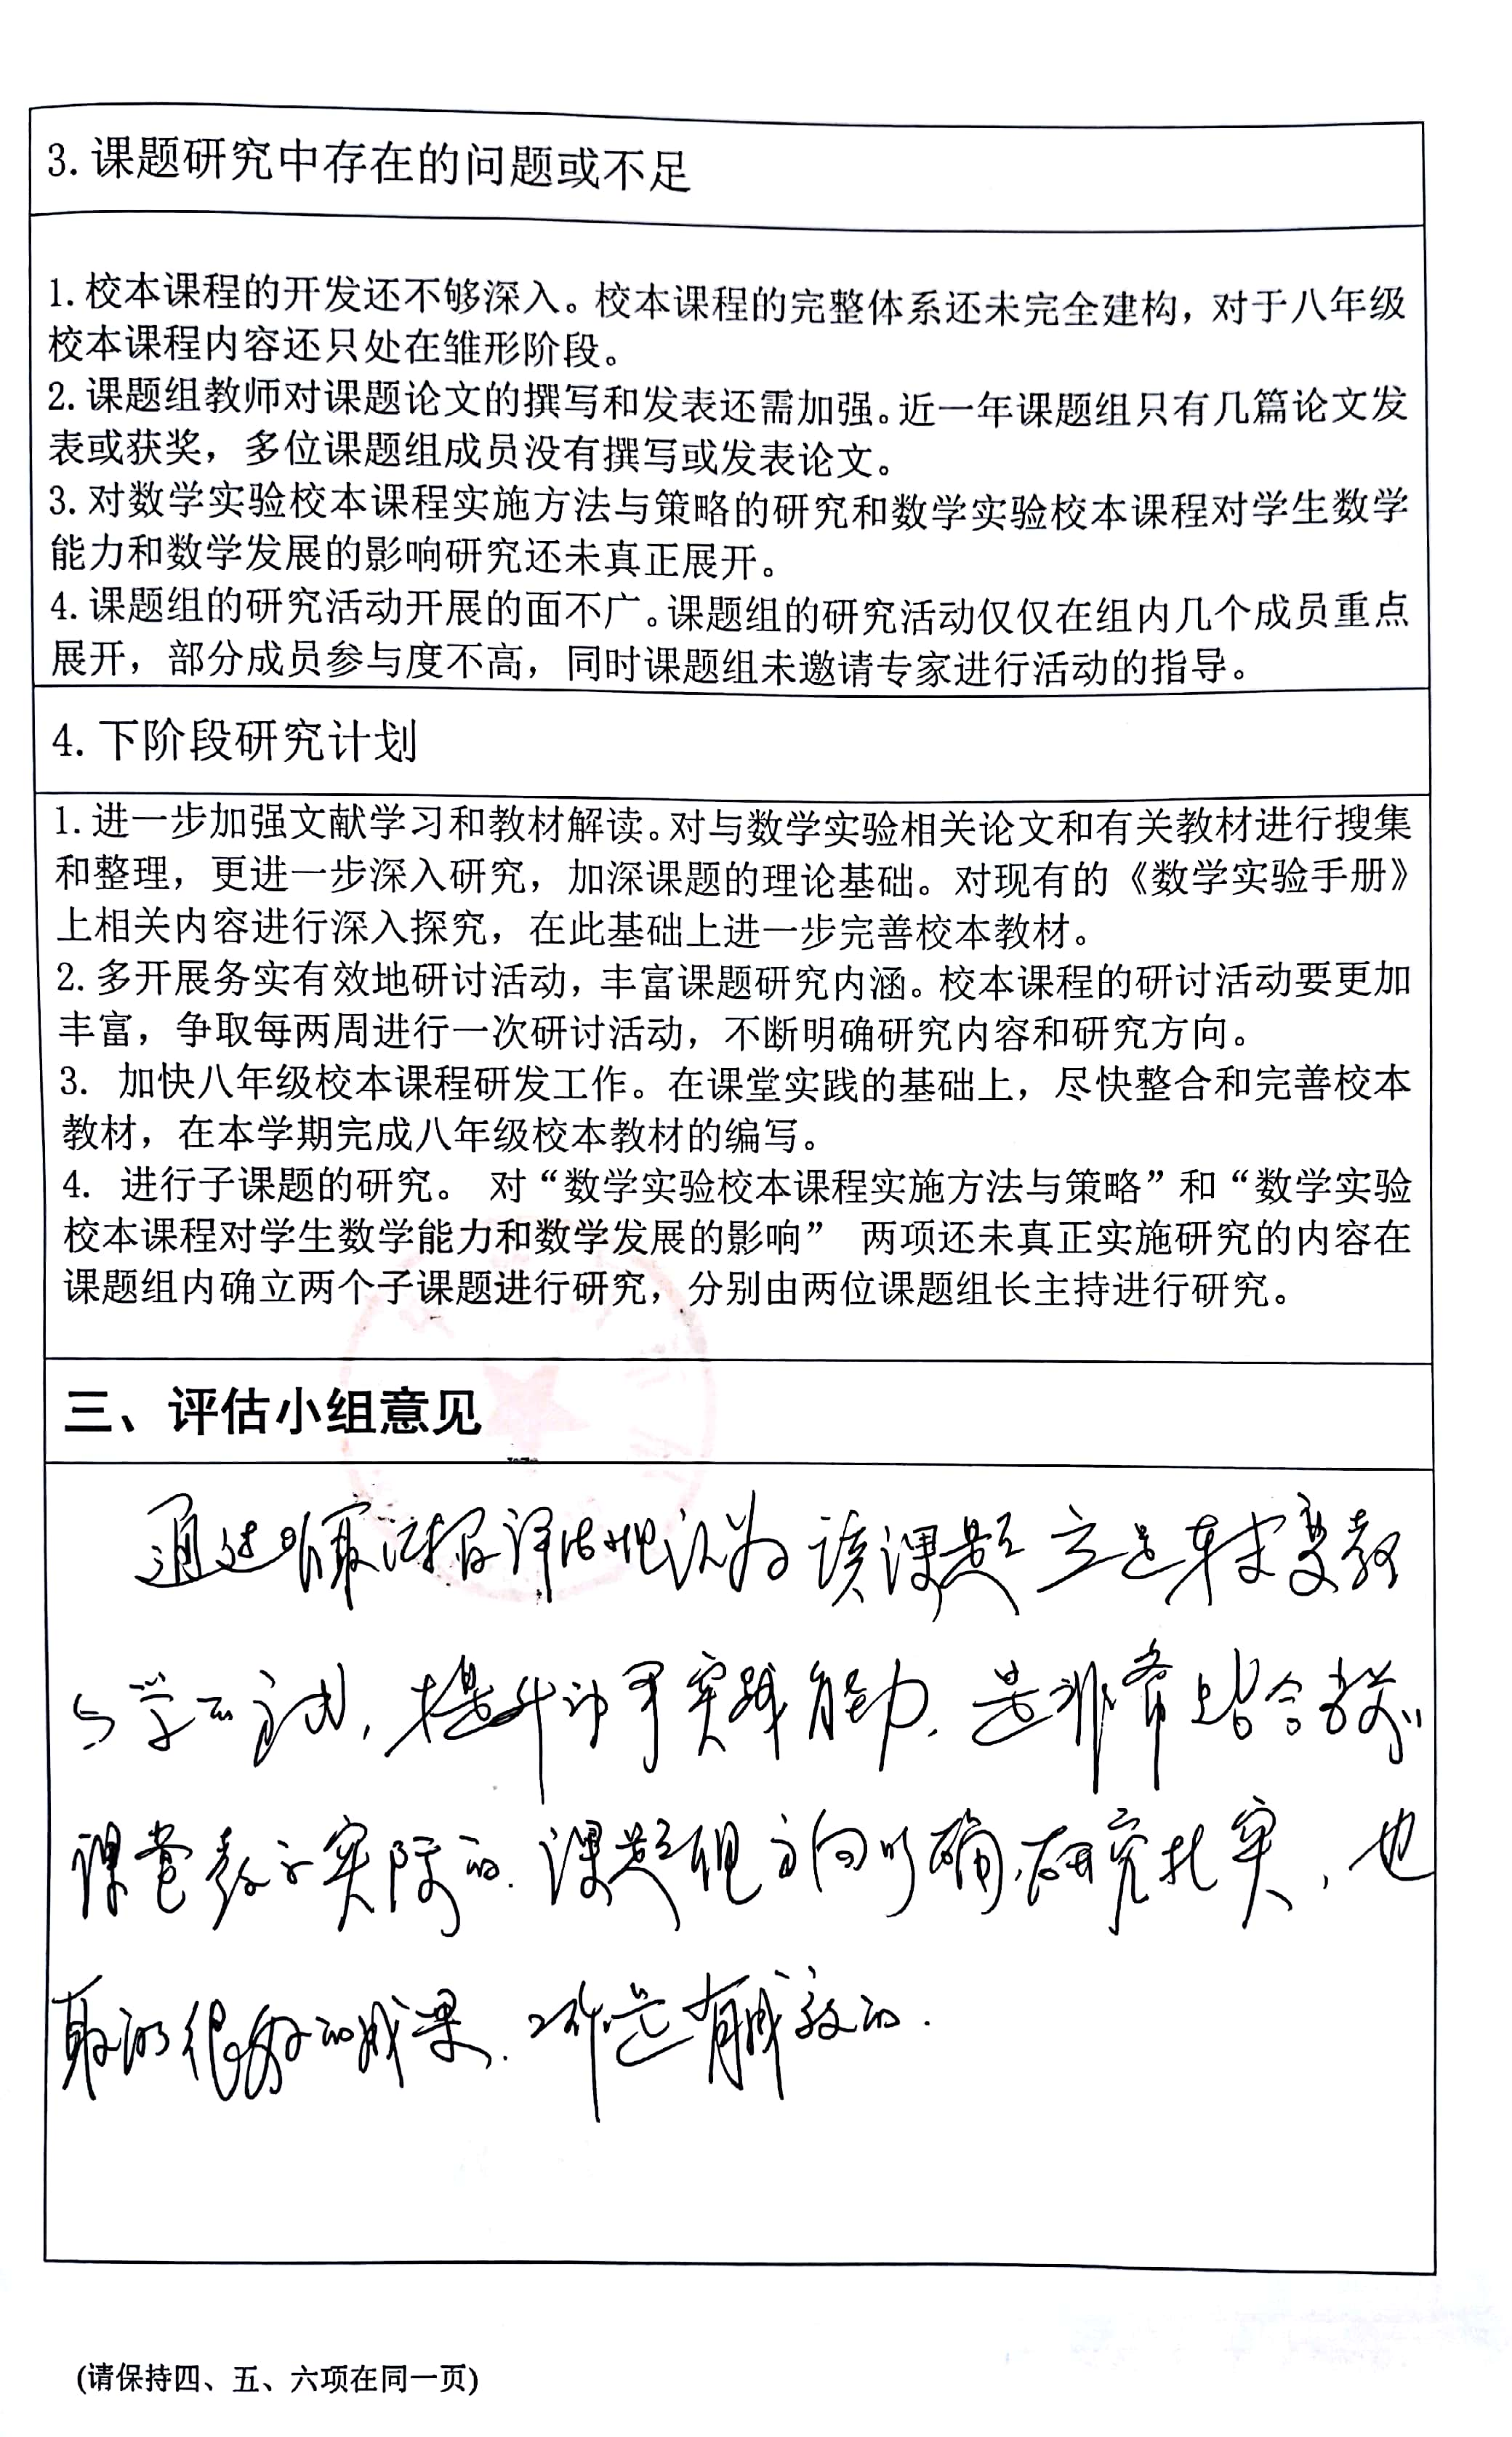 3.课题研究中存在的问题或不足
1.校本课程的开发还不够深入。校本课程的完整体系还未完全建构，对于八年级
校本课程内容还只处在雏形阶段。
2.课题组教师对课题论文的撰写和发表还需加强。近一年课题组只有几篇论文发
表或获奖，多位课题组成员没有撰写或发表论文。
3.对数学实验校本课程实施方法与策略的研究和数学实验校本课程对学生数学
能力和数学发展的影响研究还未真正展开。
4.课题组的研究活动开展的面不广。课题组的研究活动仅仅在组内几个成员重点
展开，部分成员参与度不高，同时课题组未邀请专家进行活动的指导。
4.下阶段研究计划
1.进一步加强文献学习和教材解读。对与数学实验相关论文和有关教材进行搜集
和整理，更进一步深入研究，加深课题的理论基础。对现有的《数学实验手册》
上相关内容进行深入探究，在此基础上进一步完善校本教材。
2.多开展务实有效地研讨活动，丰富课题研究内涵。校本课程的研讨活动要更加
丰富，争取每两周进行一次研讨活动，不断明确研究内容和研究方向。
3. 加快八年级校本课程研发工作。在课堂实践的基础上，尽快整合和完善校本
教材，在本学期完成八年级校本教材的编写。
4. 进行子课题的研究。 对“数学实验校本课程实施方法与策略”和“数学实验
校本课程对学生数学能力和数学发展的影响” 两项还未真正实施研究的内容在
课题组内确立两个子课题进行研究，分别由两位课题组长主持进行研究。
三、评估小组意见
通过听取汇报评估组认为该课题立足转变教
与学的方式，提升动手实践能力，是非常贴合
课堂教学实际的.课题组方向明确，研究扎实，也
取得很好的成果.工作是有成效的.
(请保持四、五、六项在同一页)